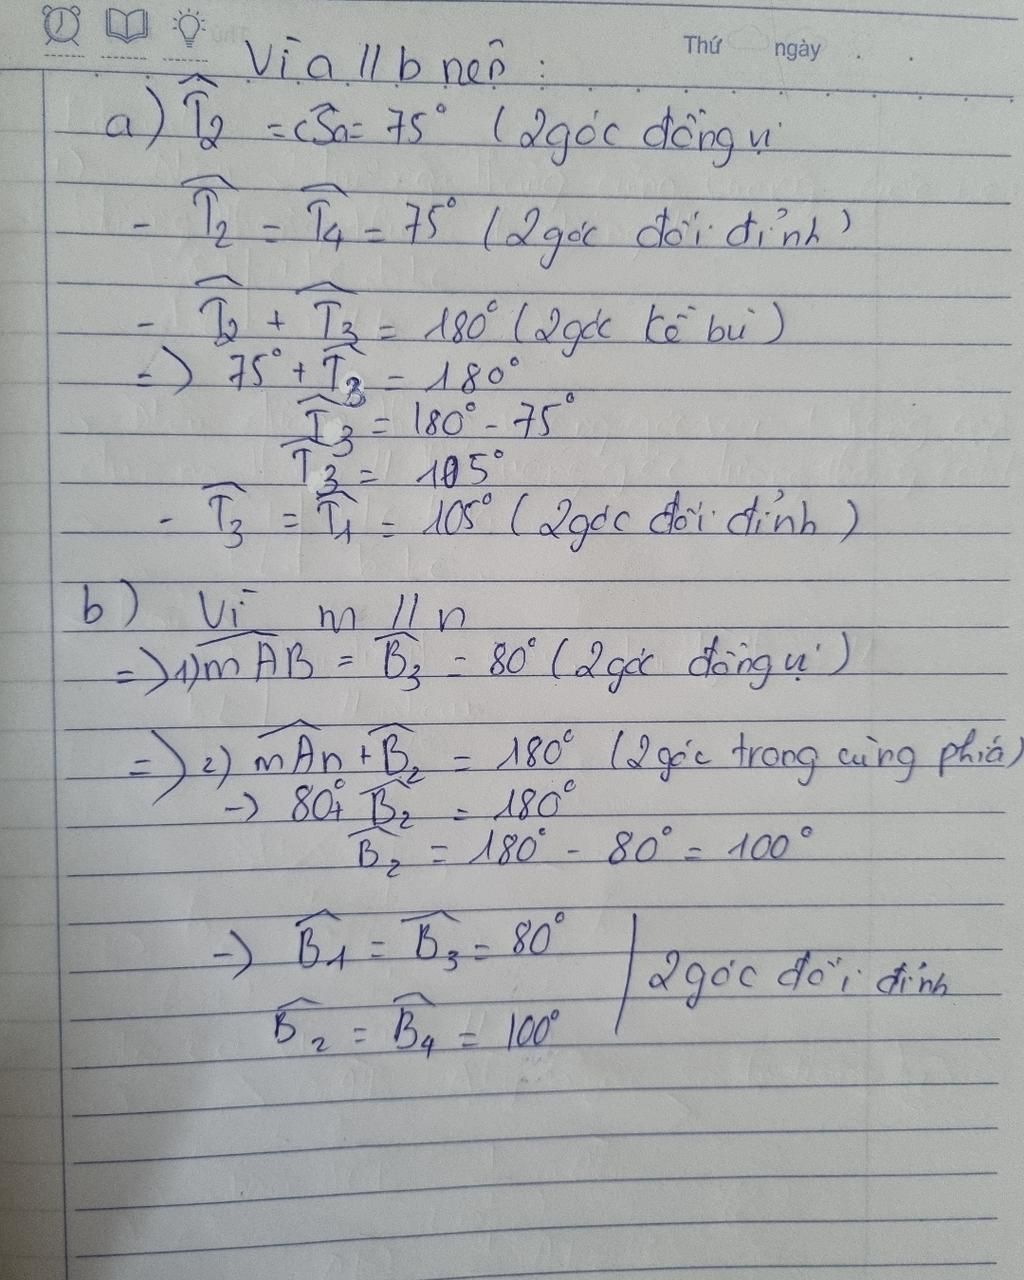 Thứ ngày
Vì a // b nên :
a) T̂2 = cSa = 75° (2 góc đồng vị
- T̂2 = T̂4 = 75° (2 góc đối đỉnh)
- T̂2 + T̂3 = 180° (2 góc kề bù)
=) 75° + T̂3 = 180°
T̂3 = 180° - 75°
T̂3 = 105°
- T̂3 = T̂1 = 105° (2 góc đối đỉnh)
b) Vì m // n
=) 1) mAB = B̂3 = 80° (2 góc đồng vị)
=) 2) mAn + B̂2 = 180° (2 góc trong cùng phía)
-) 80° + B̂2 = 180°
B̂2 = 180° - 80° = 100°
-) B̂1 = B̂3 = 80°
2 góc đối đỉnh
B̂2 = B̂4 = 100°